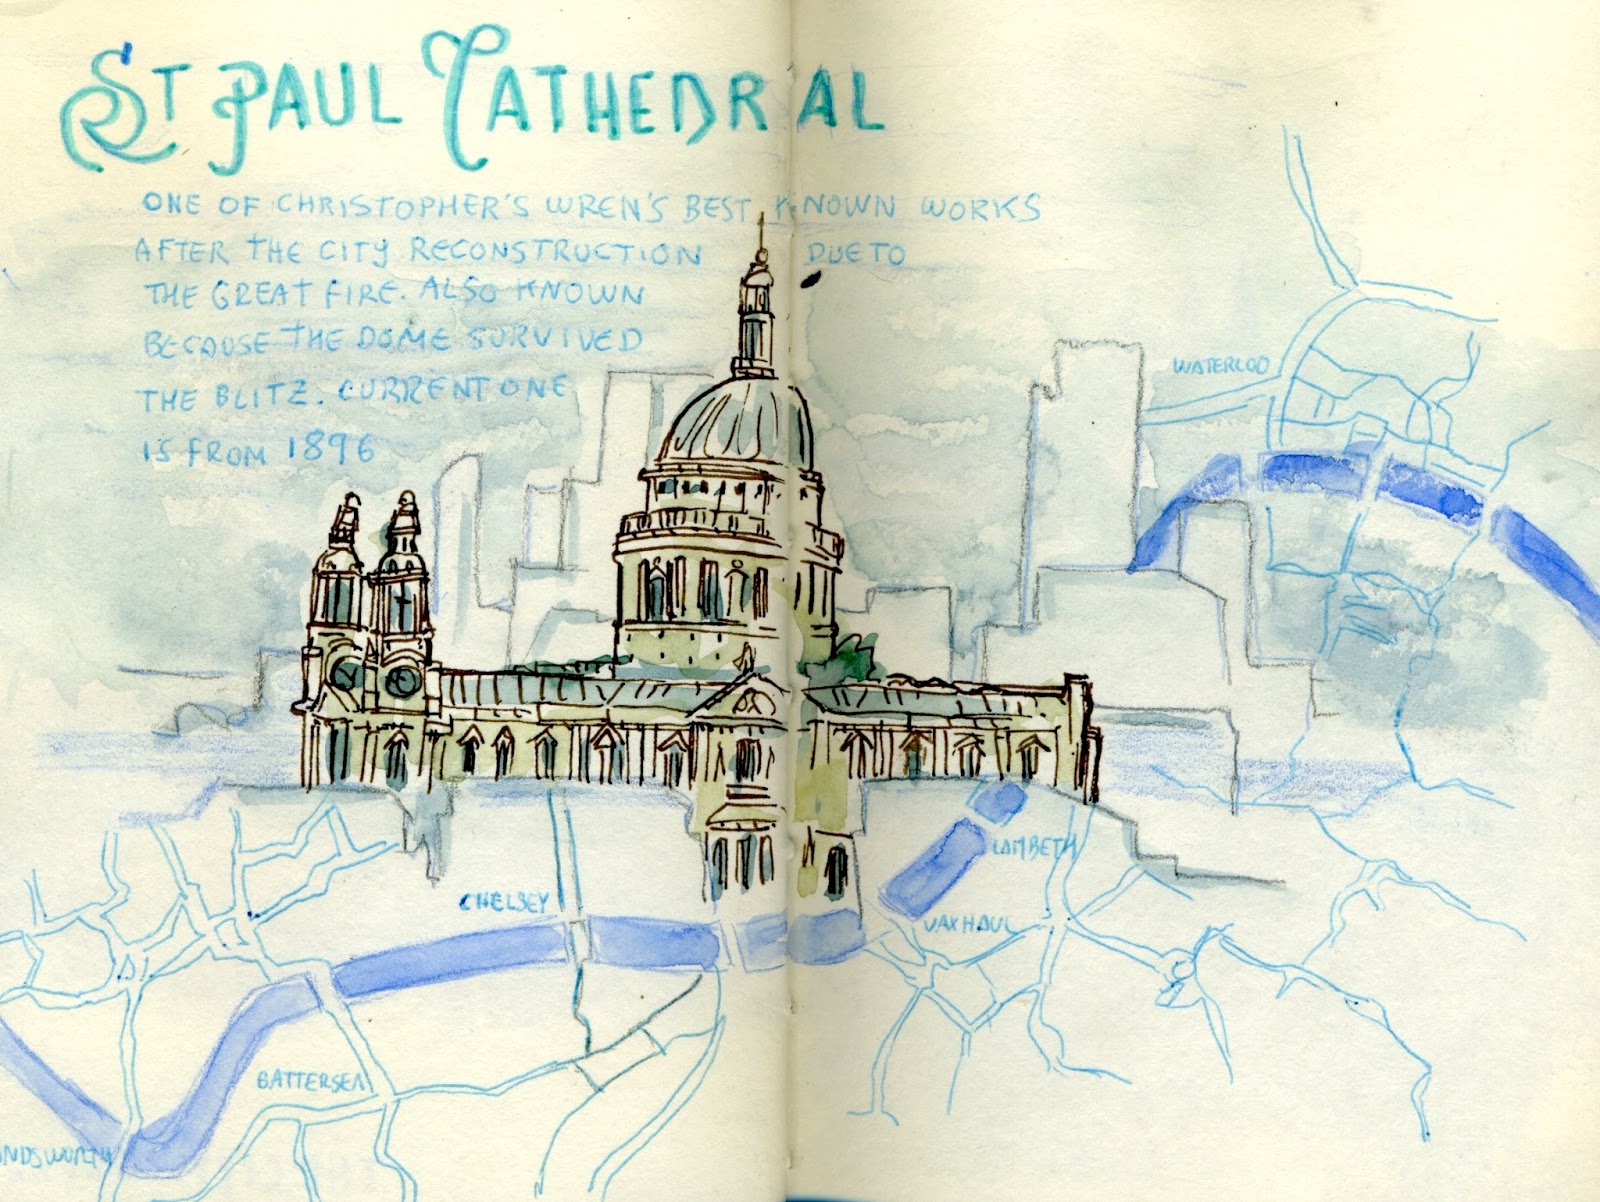 ST PAUL CATHEDRAL
ONE OF CHRISTOPHER'S WREN'S BEST KNOWN WORKS
AFTER THE CITY RECONSTRUCTION DUE TO
THE GREAT FIRE. ALSO KNOWN
BECAUSE THE DOME SURVIVED
THE BLITZ. CURRENT ONE
IS FROM 1896
WATERLOO
LAMBETH
CHELSEY
VAXHAUL
BATTERSEA